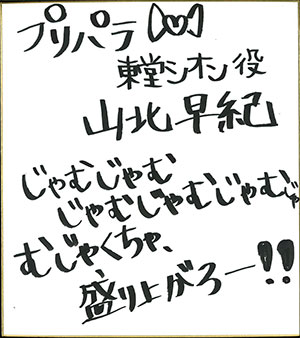 プリパラ
東堂シオン役
山北早紀
じゃむじゃむ
じゃむじゃむじゃむじゃ
むじゃくちゃ、
盛り上がろー!!